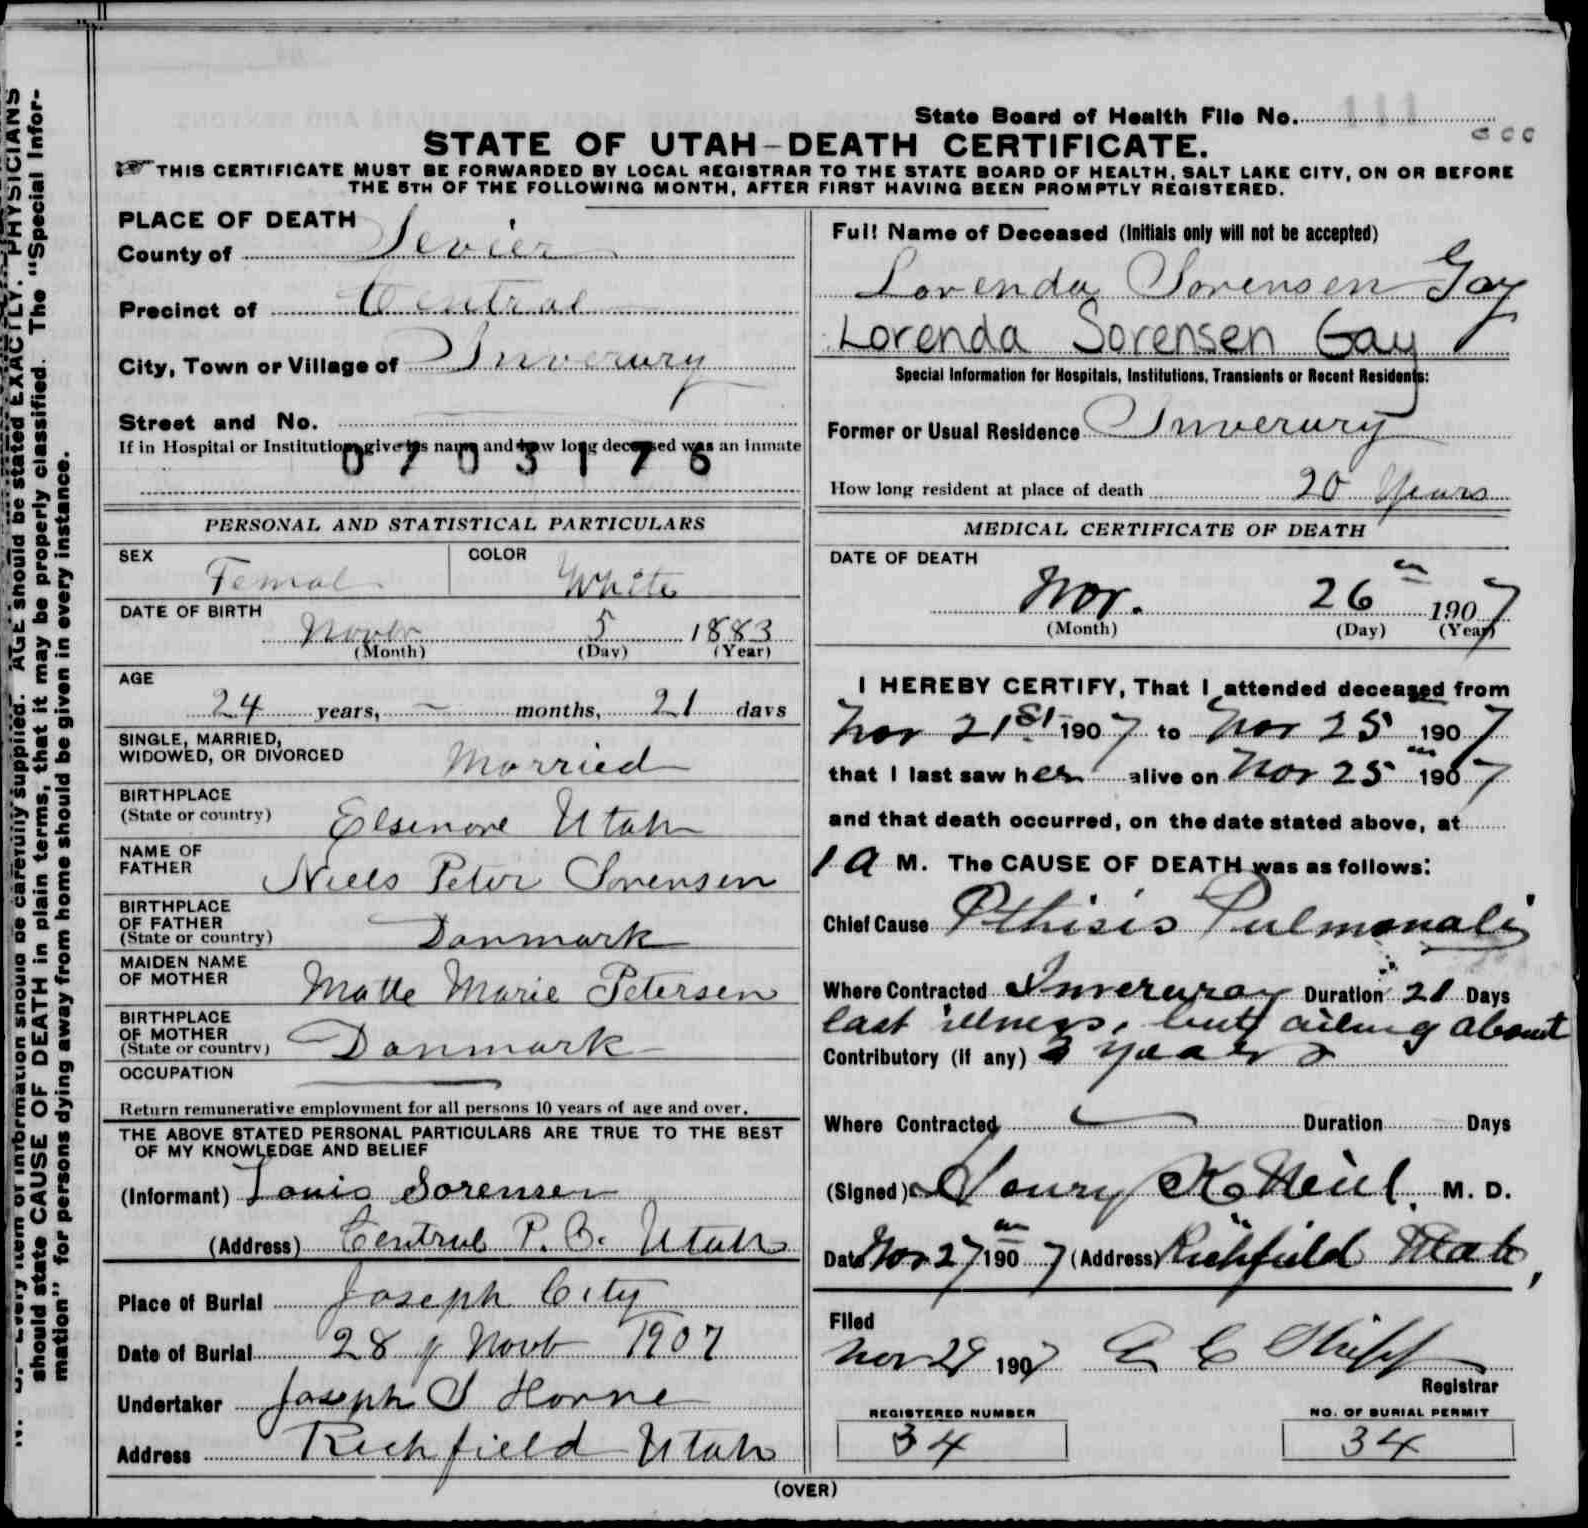 State Board of Health File No. 111
STATE OF UTAH-DEATH CERTIFICATE.
THIS CERTIFICATE MUST BE FORWARDED BY LOCAL REGISTRAR TO THE STATE BOARD OF HEALTH, SALT LAKE CITY, ON OR BEFORE
THE 5TH OF THE FOLLOWING MONTH, AFTER FIRST HAVING BEEN PROMPTLY REGISTERED.
PLACE OF DEATH
County of Sevier
Precinct of Central
City, Town or Village of Inverury
Street and No.
If in Hospital or Institution, give its name and how long deceased was an inmate
0703176
PERSONAL AND STATISTICAL PARTICULARS
SEX Femal
COLOR White
DATE OF BIRTH
Novbr 5 1883
(Month) (Day) (Year)
AGE
24 years, — months, 21 days
SINGLE, MARRIED,
WIDOWED, OR DIVORCED Married
BIRTHPLACE
(State or country) Elsinore Utah
NAME OF
FATHER Niels Peter Sorensen
BIRTHPLACE
OF FATHER
(State or country) Danmark
MAIDEN NAME
OF MOTHER Matte Marie Petersen
BIRTHPLACE
OF MOTHER
(State or country) Danmark
OCCUPATION
Return remunerative employment for all persons 10 years of age and over.
THE ABOVE STATED PERSONAL PARTICULARS ARE TRUE TO THE BEST
OF MY KNOWLEDGE AND BELIEF
(Informant) Louis Sorensen
(Address) Central P.O. Utah
Place of Burial Joseph City
Date of Burial 28 of Novb 1907
Undertaker Joseph S Horne
Address Richfield Utah
Full Name of Deceased (Initials only will not be accepted)
Lorenda Sorensen Gay
Lorenda Sorensen Gay
Special Information for Hospitals, Institutions, Transients or Recent Residents:
Former or Usual Residence Inverury
How long resident at place of death 20 Years
MEDICAL CERTIFICATE OF DEATH
DATE OF DEATH
Nov. 26 1907
(Month) (Day) (Year)
I HEREBY CERTIFY, That I attended deceased from
Nov 21st 1907 to Nov 25 1907
that I last saw her alive on Nov 25 1907
and that death occurred, on the date stated above, at
1 a M. The CAUSE OF DEATH was as follows:
Chief Cause Pthisis Pulmonali
Where Contracted Inveruray Duration 21 Days
last illness, but ailing about
Contributory (if any) 3 years
Where Contracted — Duration Days
(Signed) M. D.
Date Nov 27 1907 (Address) Richfield Utah,
Filed
Nov 29 1907
Registrar
REGISTERED NUMBER
34
NO. OF BURIAL PERMIT
34
(OVER)
should state CAUSE OF DEATH in plain terms, that it may be properly classified. The "Special Infor-
mation" for persons dying away from home should be given in every instance.